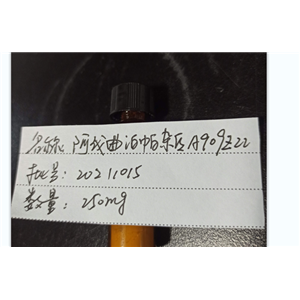 名称: 阿伐曲泊帕杂质A909Z22
批号: 20211015
数量: 250mg